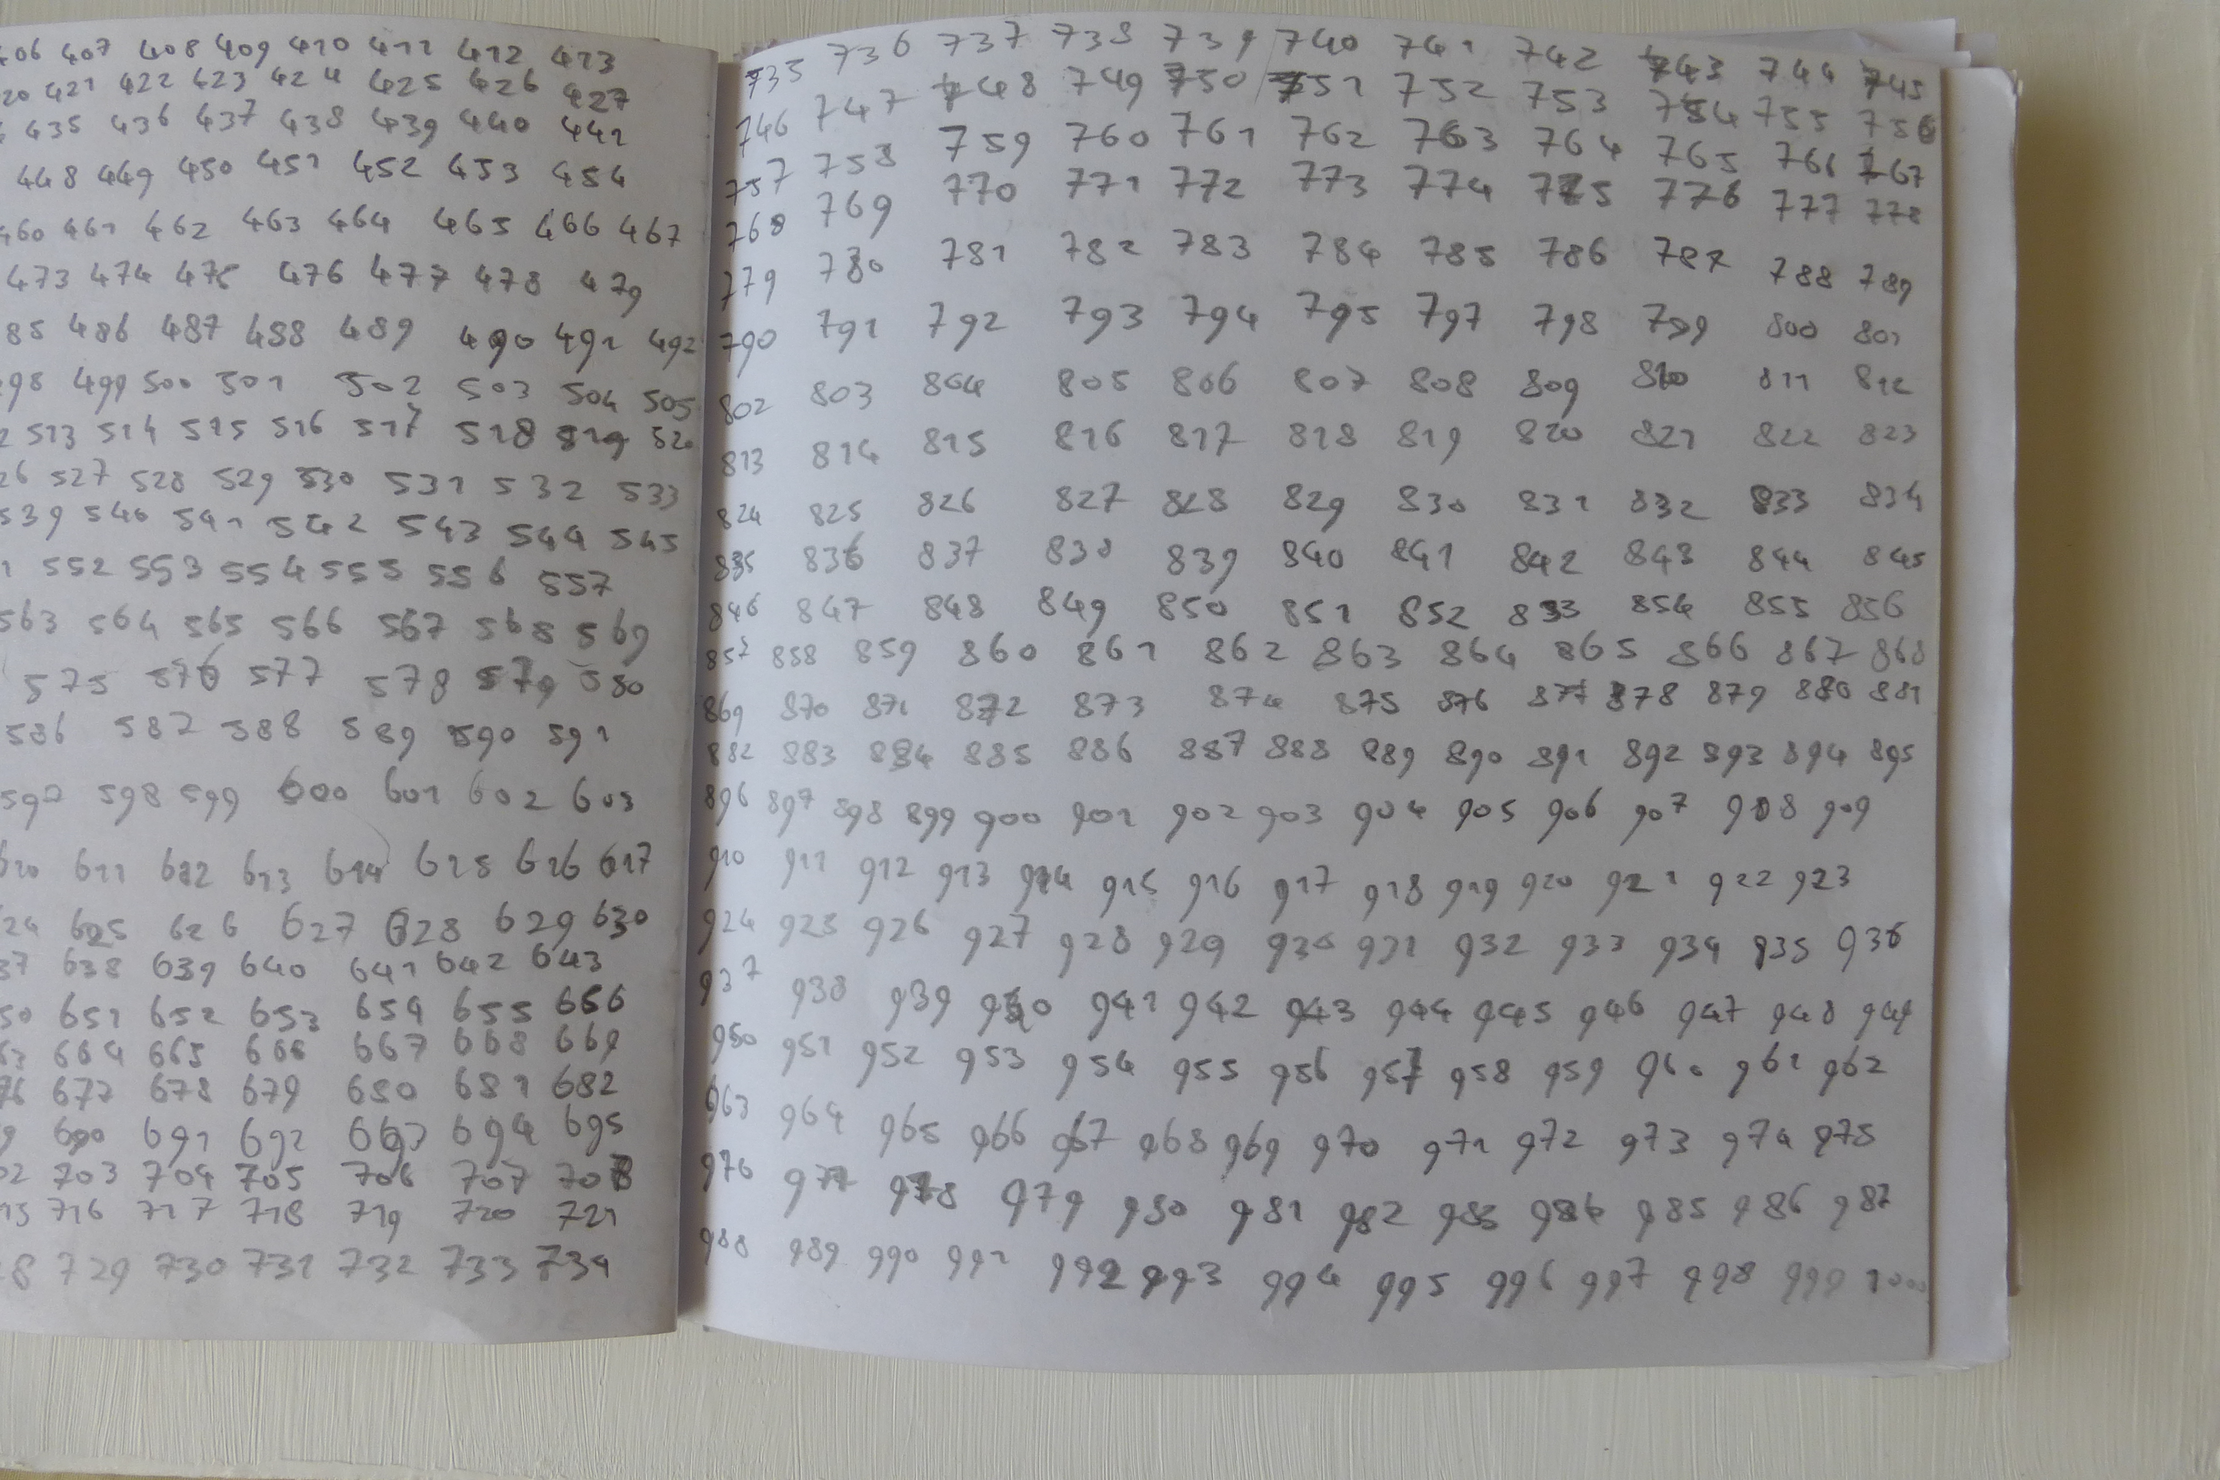 406 407 408 409 410 411 412 413
20 421 422 423 424 425 426 427
435 436 437 438 439 440 441
448 449 450 451 452 453 454
460 461 462 463 464 465 466 467
473 474 475 476 477 478 479
85 486 487 488 489 490 491 492
98 499 500 501 502 503 504 505
2 513 514 515 516 517 518 519 520
26 527 528 529 530 531 532 533
539 540 541 542 543 544 545
1 552 553 554 555 556 557
563 564 565 566 567 568 569
575 576 577 578 579 580
586 587 588 589 590 591
597 598 599 600 601 602 603
610 611 612 613 614 615 616 617
24 625 626 627 628 629 630
37 638 639 640 641 642 643
50 651 652 653 654 655 656
63 664 665 666 667 668 669
76 677 678 679 680 681 682
9 690 691 692 693 694 695
02 703 704 705 706 707 708
15 716 717 718 719 720 721
28 729 730 731 732 733 734
735 736 737 738 739 740 741 742 743 744 745
746 747 748 749 750 751 752 753 754 755 756
757 758 759 760 761 762 763 764 765 766 767
768 769 770 771 772 773 774 775 776 777 778
779 780 781 782 783 784 785 786 787 788 789
790 791 792 793 794 795 797 798 799 800 801
802 803 804 805 806 807 808 809 810 811 812
813 814 815 816 817 818 819 820 821 822 823
824 825 826 827 828 829 830 831 832 833 834
835 836 837 838 839 840 841 842 843 844 845
846 847 848 849 850 851 852 853 854 855 856
857 858 859 860 861 862 863 864 865 866 867 868
869 870 871 872 873 874 875 876 877 878 879 880 881
882 883 884 885 886 887 888 889 890 891 892 893 894 895
896 897 898 899 900 901 902 903 904 905 906 907 908 909
910 911 912 913 914 915 916 917 918 919 920 921 922 923
924 925 926 927 928 929 930 931 932 933 934 935 936
937 938 939 940 941 942 943 944 945 946 947 948 949
950 951 952 953 954 955 956 957 958 959 960 961 962
963 964 965 966 967 968 969 970 971 972 973 974 975
976 977 978 979 980 981 982 983 984 985 986 987
988 989 990 991 992 993 994 995 996 997 998 999 1000